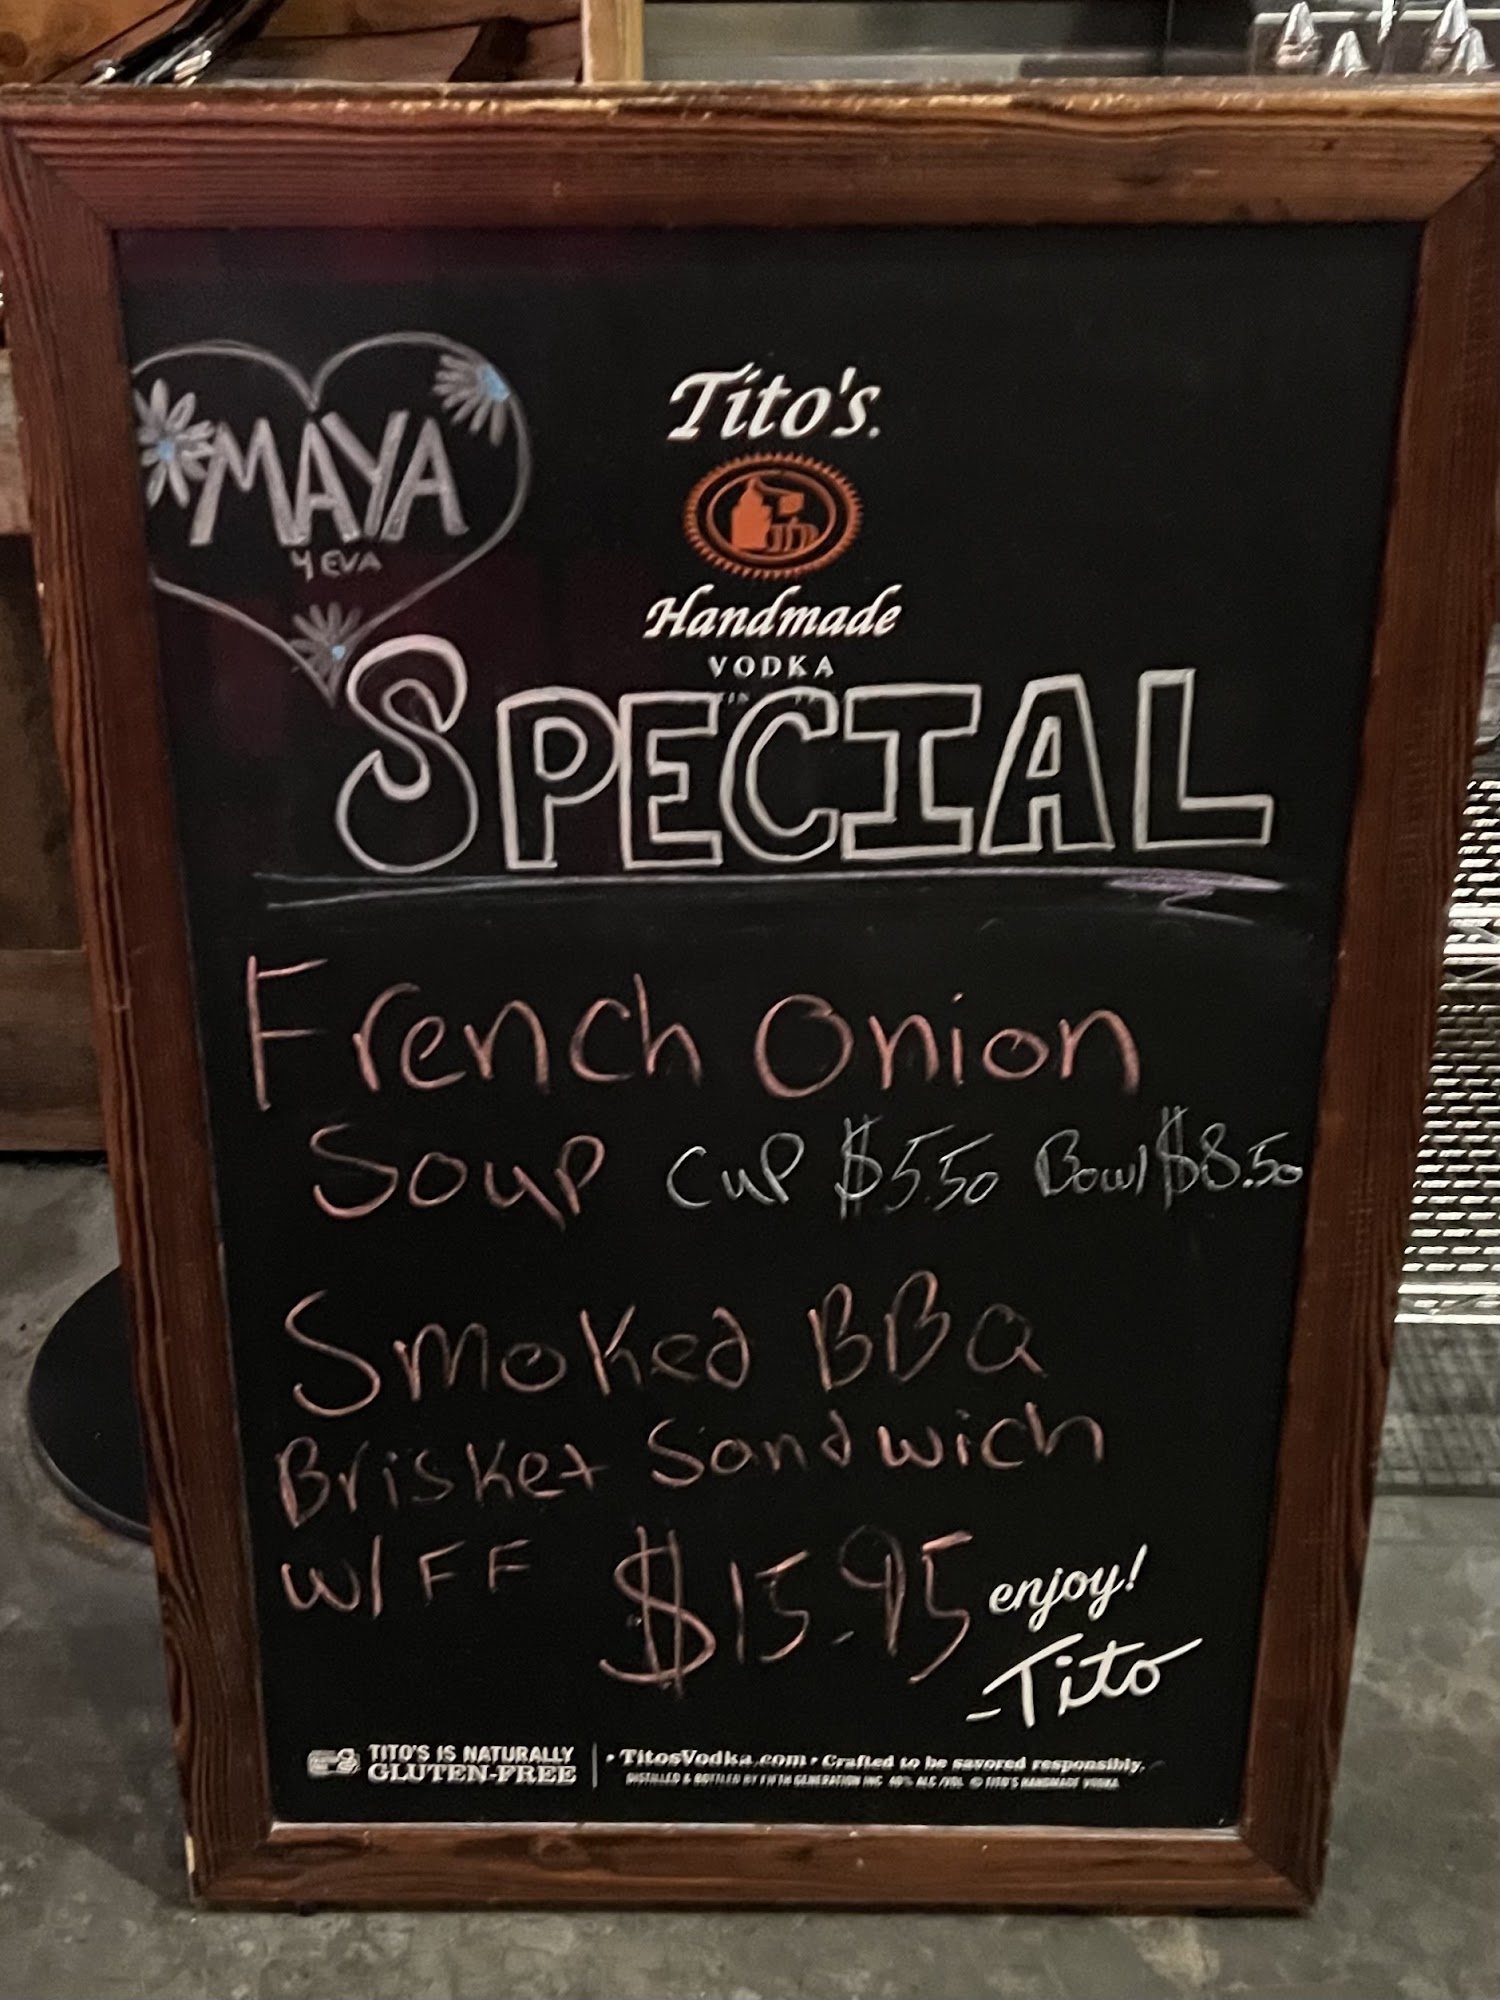 MAYA
4 EVA
Tito's.
Handmade
VODKA
SPECIAL
French Onion
Soup Cup $5.50 Bowl $8.50
Smoked BBQ
Brisket Sandwich
W/ FF $15.95
enjoy!
-Tito
TITO'S IS NATURALLY
GLUTEN-FREE
• TitosVodka.com • Crafted to be savored responsibly.
DISTILLED & BOTTLED BY FIFTH GENERATION INC. 40% ALC./VOL. © TITO'S HANDMADE VODKA